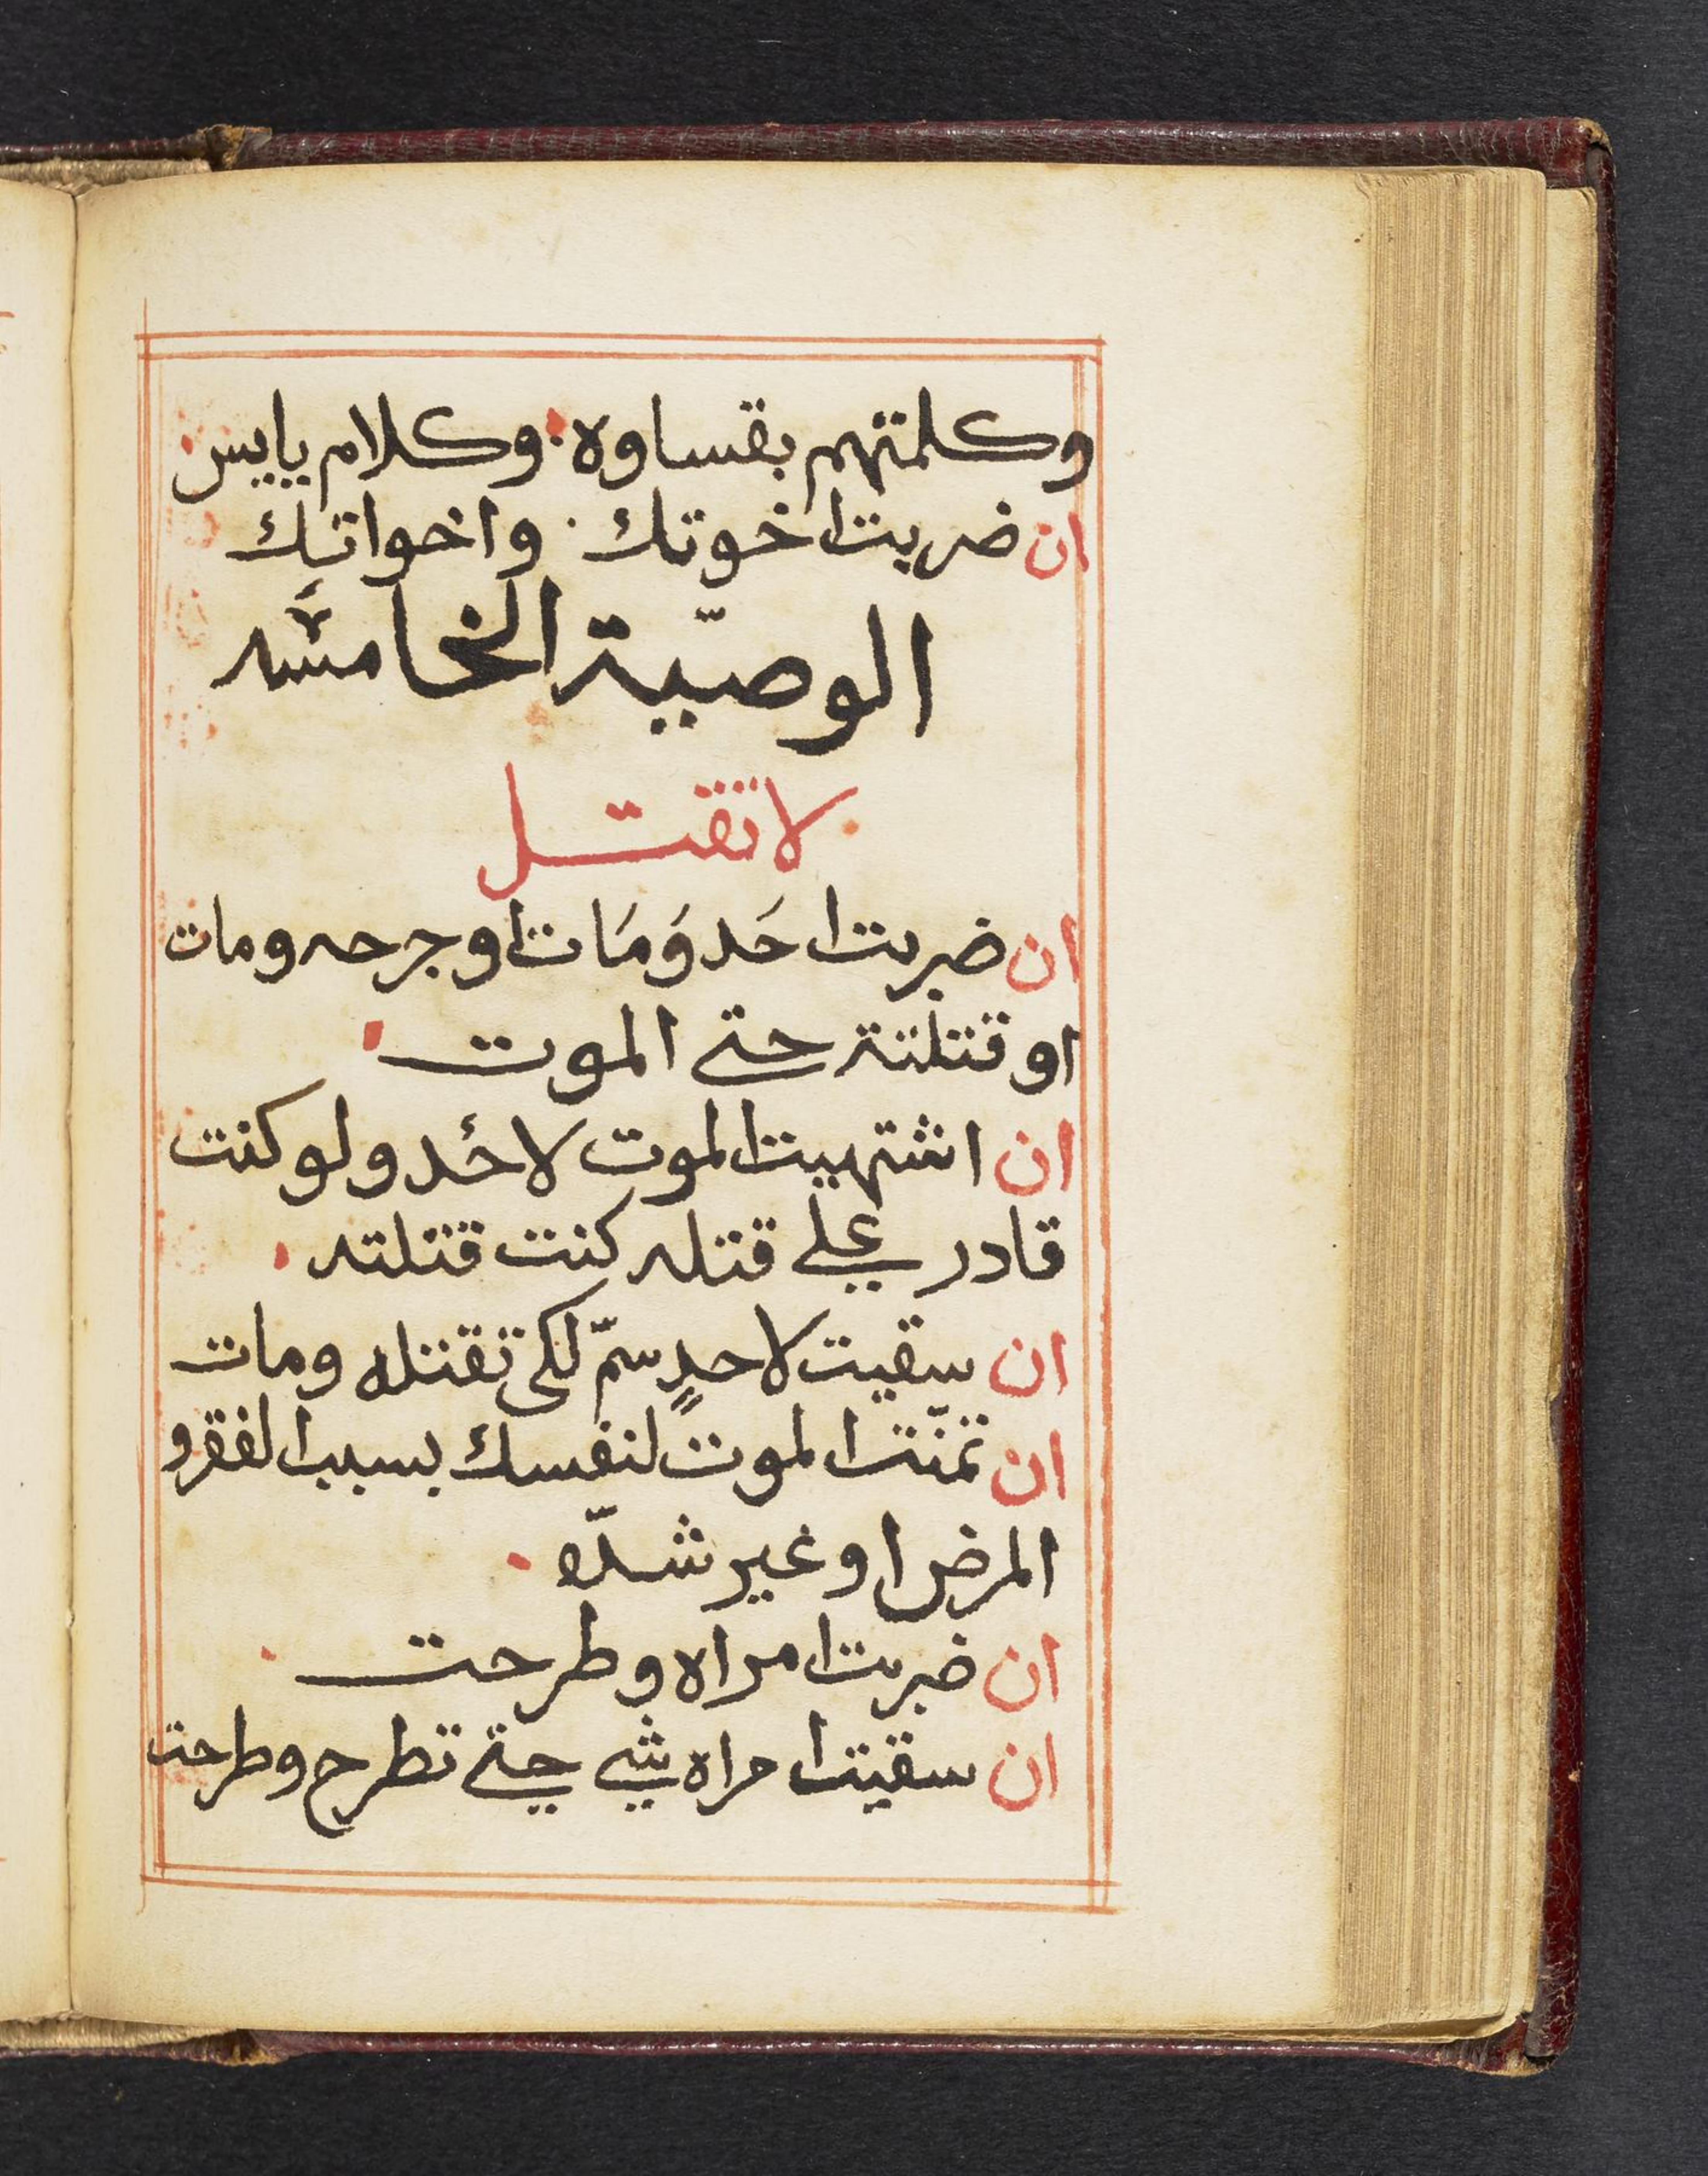 وكلمتهم بقساوه. وكلام يابس
ان ضربت اخوتك. واخواتك
الوصيّة الخامسه
لا تقتل
ان ضربت احَد وَمَات او جرحه ومات
او قتلتة حتى الموت
ان اشتهيت الموت لاحد ولو كنت
قادر على قتله كنت قتلته
ان سقيت لاحدٍ سمّ لكى تقتله ومات
ان تمنّت الموت لنفسك بسبب الفقر و
المرض او غير شدّه
ان ضربت امراه وطرحت
ان سقيت امراه شى حتى تطرح وطرحت